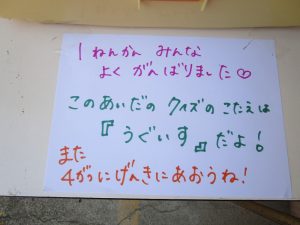 1ねんかん みんな
よく がんばりました♡
このあいだの クイズの こたえは
『うぐいす』だよ!
また
4がつにげんきにあおうね!